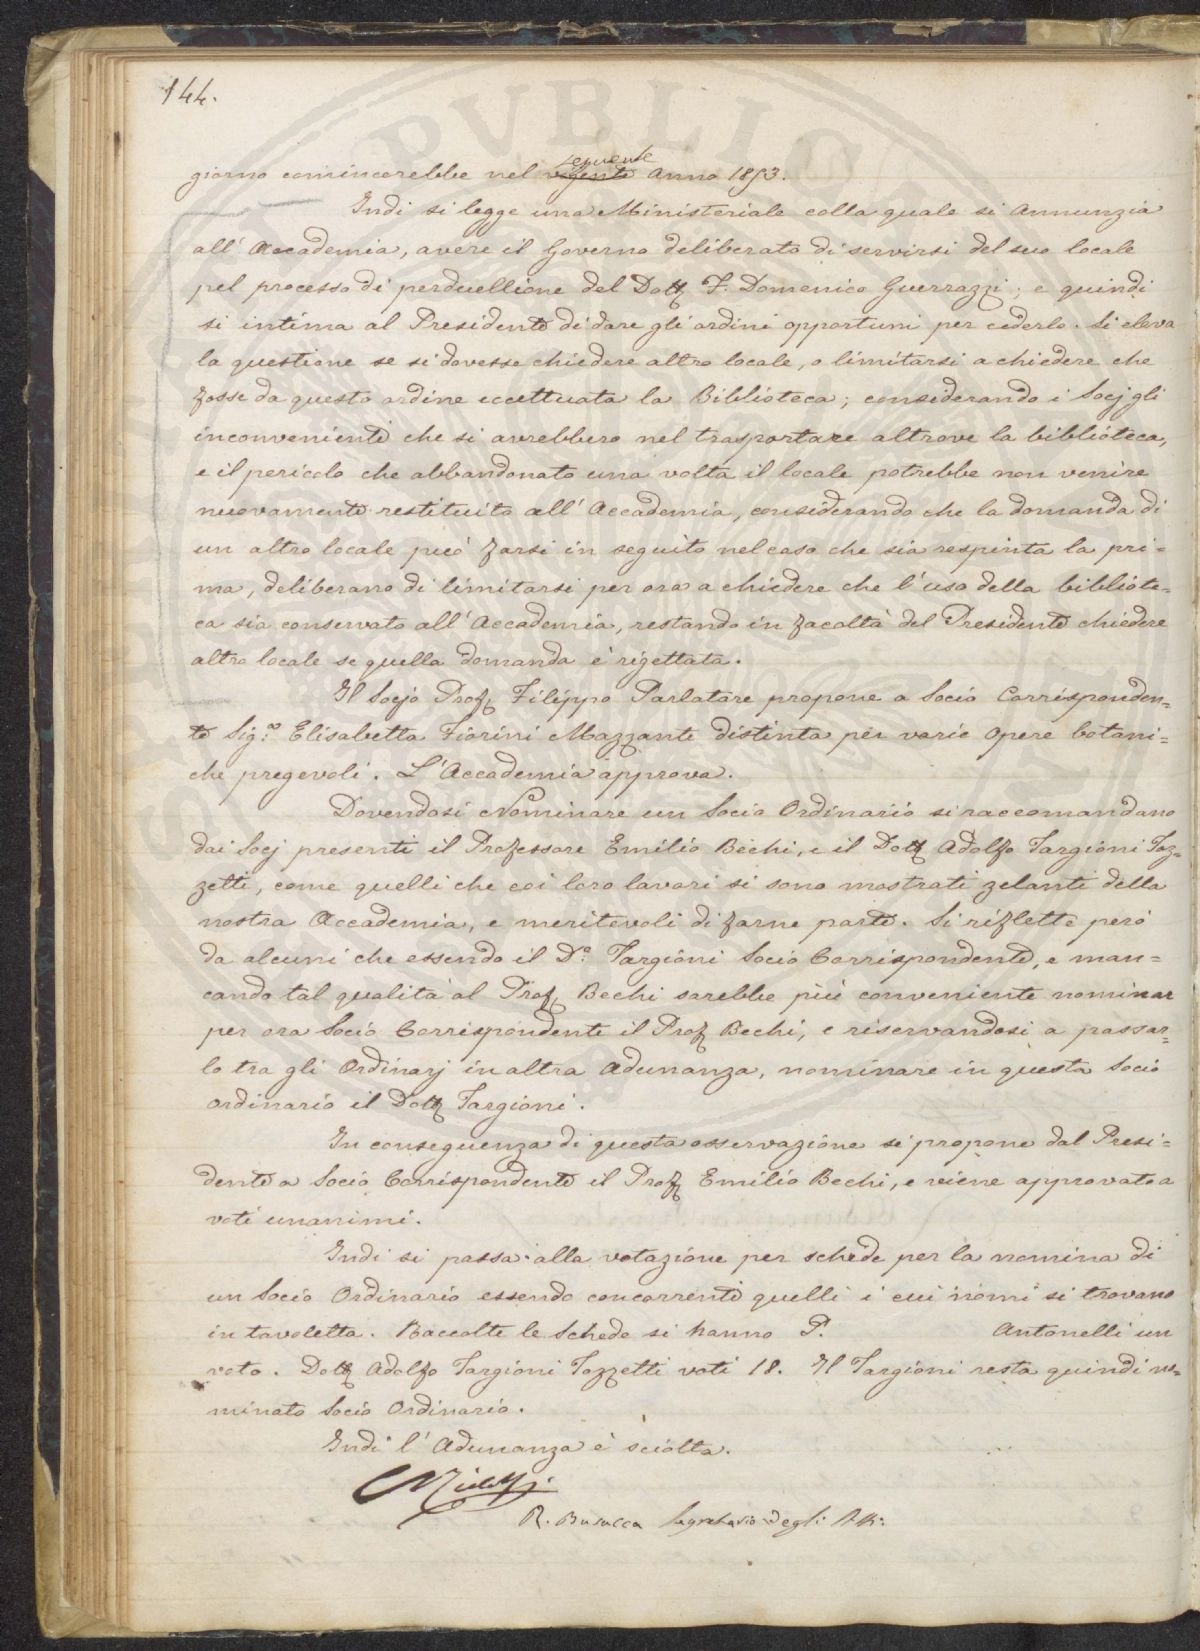 144.
seguente
giorno comincerebbe nel vigente Anno 1853.
Indi si legge una Ministeriale colla quale si Annunzia
all' Accademia, avere il Governo deliberato di servirsi del suo locale
pel processo di perduellione del Dott. F. Domenico Guerrazzi; e quindi
si intima al Presidente di dare gli ordini opportuni per cederlo. Si eleva
la questione se si dovesse chiedere altro locale, o limitarsi a chiedere che
fosse da questo ordine eccettuata la Biblioteca; considerando i Socj gli
inconvenienti che si avrebbero nel trasportare altrove la biblioteca,
e il pericolo che abbandonato una volta il locale potrebbe non venire
nuovamente restituito all' Accademia, considerando che la domanda di
un altro locale può farsi in seguito nel caso che sia respinta la pri=
ma, deliberano di limitarsi per ora a chiedere che l'uso della bibliote=
ca sia conservato all' Accademia, restando in facoltà del Presidente chiedere
altro locale se quella domanda è rigettata.
Il Socio Prof. Filippo Parlatore propone a Socio Corrisponden=
te Sig.ra Elisabetta Fiorini Mazzante distinta per varie opere botani=
che pregevoli. L'Accademia approva.
Dovendosi Nominare un Socio Ordinario si raccomandano
dai Socj presenti il Professore Emilio Bechi, e il Dott. Adolfo Targioni Toz=
zetti, come quelli che coi loro lavori si sono mostrati zelanti della
nostra Accademia, e meritevoli di farne parte. Si riflette però
da alcuni che essendo il D.e Targioni Socio Corrispondente, e man=
cando tal qualità al Prof. Bechi sarebbe più conveniente nominar
per ora Socio Corrispondente il Prof. Bechi, e riservandosi a passar=
lo tra gli Ordinarj in altra Adunanza, nominare in questa Socio
ordinario il Dott. Targioni.
In conseguenza di questa osservazione si propone dal Presi=
dente a Socio Corrispondente il Prof. Emilio Bechi, e viene approvato a
voti unanimi.
Indi si passa alla votazione per schede per la nomina di
un Socio Ordinario essendo concorrenti quelli i cui nomi si trovano
in tavoletta. Raccolte le Schede si hanno P. Antonelli un
voto. Dott. Adolfo Targioni Tozzetti voti 18. Il Targioni resta quindi no=
minato Socio Ordinario.
Indi l' Adunanza è sciolta.
R. Busacca Segretario degli Atti